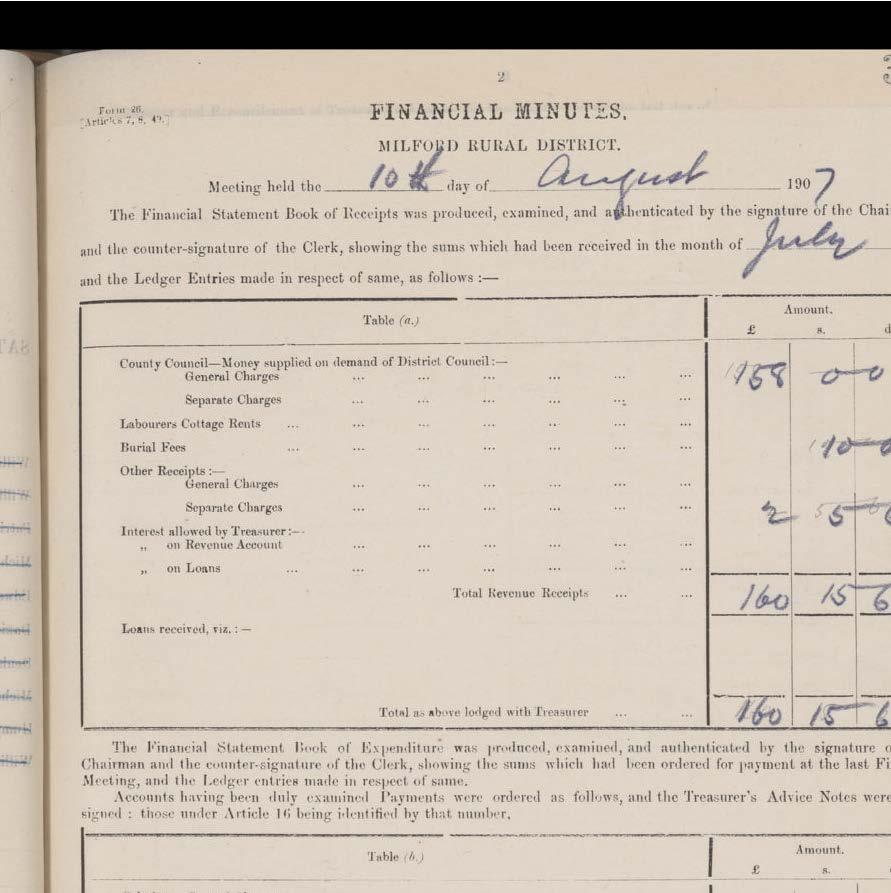 2
Form 26.
[Articles 7, 8, 49.]
FINANCIAL MINUTES.
MILFORD RURAL DISTRICT.
Meeting held the 10th day of August 1907
The Financial Statement Book of Receipts was produced, examined, and authenticated by the signature of the Chai
and the counter-signature of the Clerk, showing the sums which had been received in the month of July
and the Ledger Entries made in respect of same, as follows :—
Table (a.) Amount.
£ s. d
County Council—Money supplied on demand of District Council:—
General Charges ... ... ... ... ... ... 158 0 0
Separate Charges ... ... ... ... ... ...
Labourers Cottage Rents ... ... ... ... ... ... ...
Burial Fees ... ... ... ... ... ... ... 10 0
Other Receipts :—
General Charges ... ... ... ... ... ...
Separate Charges ... ... ... ... ... ... 2 5 6
Interest allowed by Treasurer :—
„ on Revenue Account ... ... ... ... ... ...
„ on Loans ... ... ... ... ... ... ...
Total Revenue Receipts ... ... 160 15 6
Loans received, viz. : —
Total as above lodged with Treasurer ... ... 160 15 6
The Financial Statement Book of Expenditure was produced, examined, and authenticated by the signature o
Chairman and the counter-signature of the Clerk, showing the sums which had been ordered for payment at the last Fi
Meeting, and the Ledger entries made in respect of same.
Accounts having been duly examined Payments were ordered as follows, and the Treasurer's Advice Notes were
signed : those under Article 16 being identified by that number.
Table (b.) Amount.
£ s.